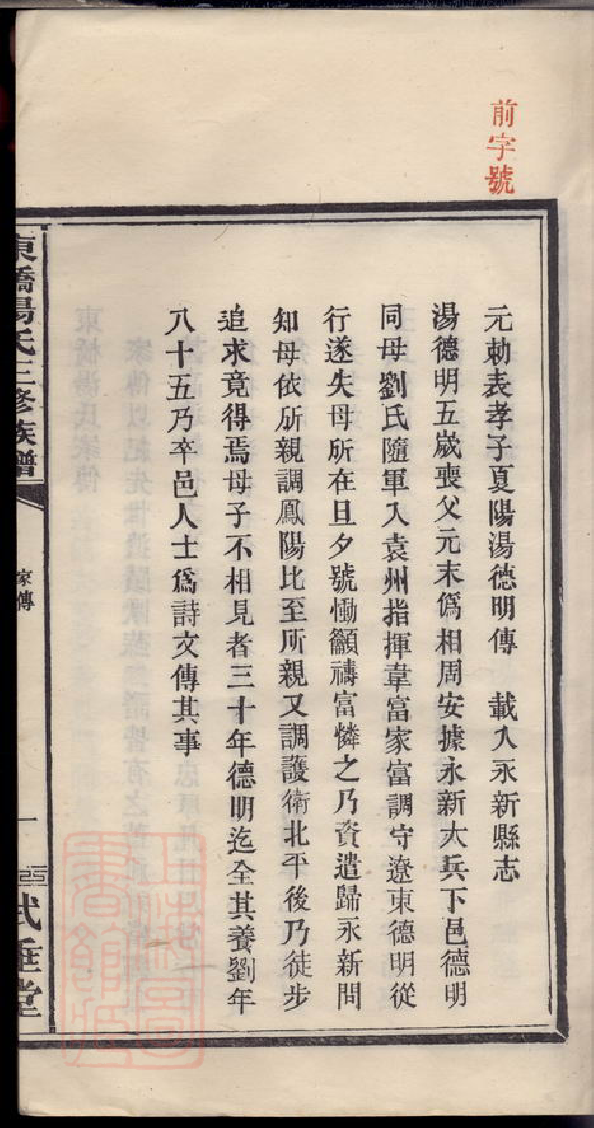 前字號
元勅表孝子夏陽湯德明傳　載入永新縣志
湯德明五歲喪父元末僞相周安據永新大兵下邑德明
同母劉氏隨軍入袁州指揮韋富家富調守遼東德明從
行遂失母所在旦夕號慟籲禱富憐之乃資遣歸永新問
知母依所親調鳳陽比至所親又調護衛北平後乃徒步
追求竟得焉母子不相見者三十年德明迄全其養劉年
八十五乃卒邑人士爲詩文傳其事
東橋湯氏三修族譜
家傳
一
式垂堂